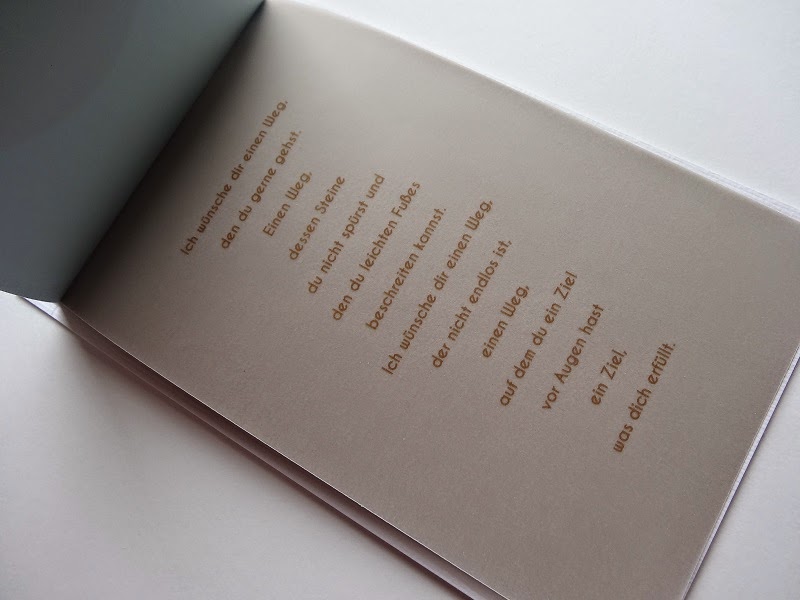 Ich wünsche dir einen Weg,
den du gerne gehst.
Einen Weg,
dessen Steine
du nicht spürst und
den du leichten Fußes
beschreiten kannst.
Ich wünsche dir einen Weg,
der nicht endlos ist,
einen Weg,
auf dem du ein Ziel
vor Augen hast
ein Ziel,
was dich erfüllt.